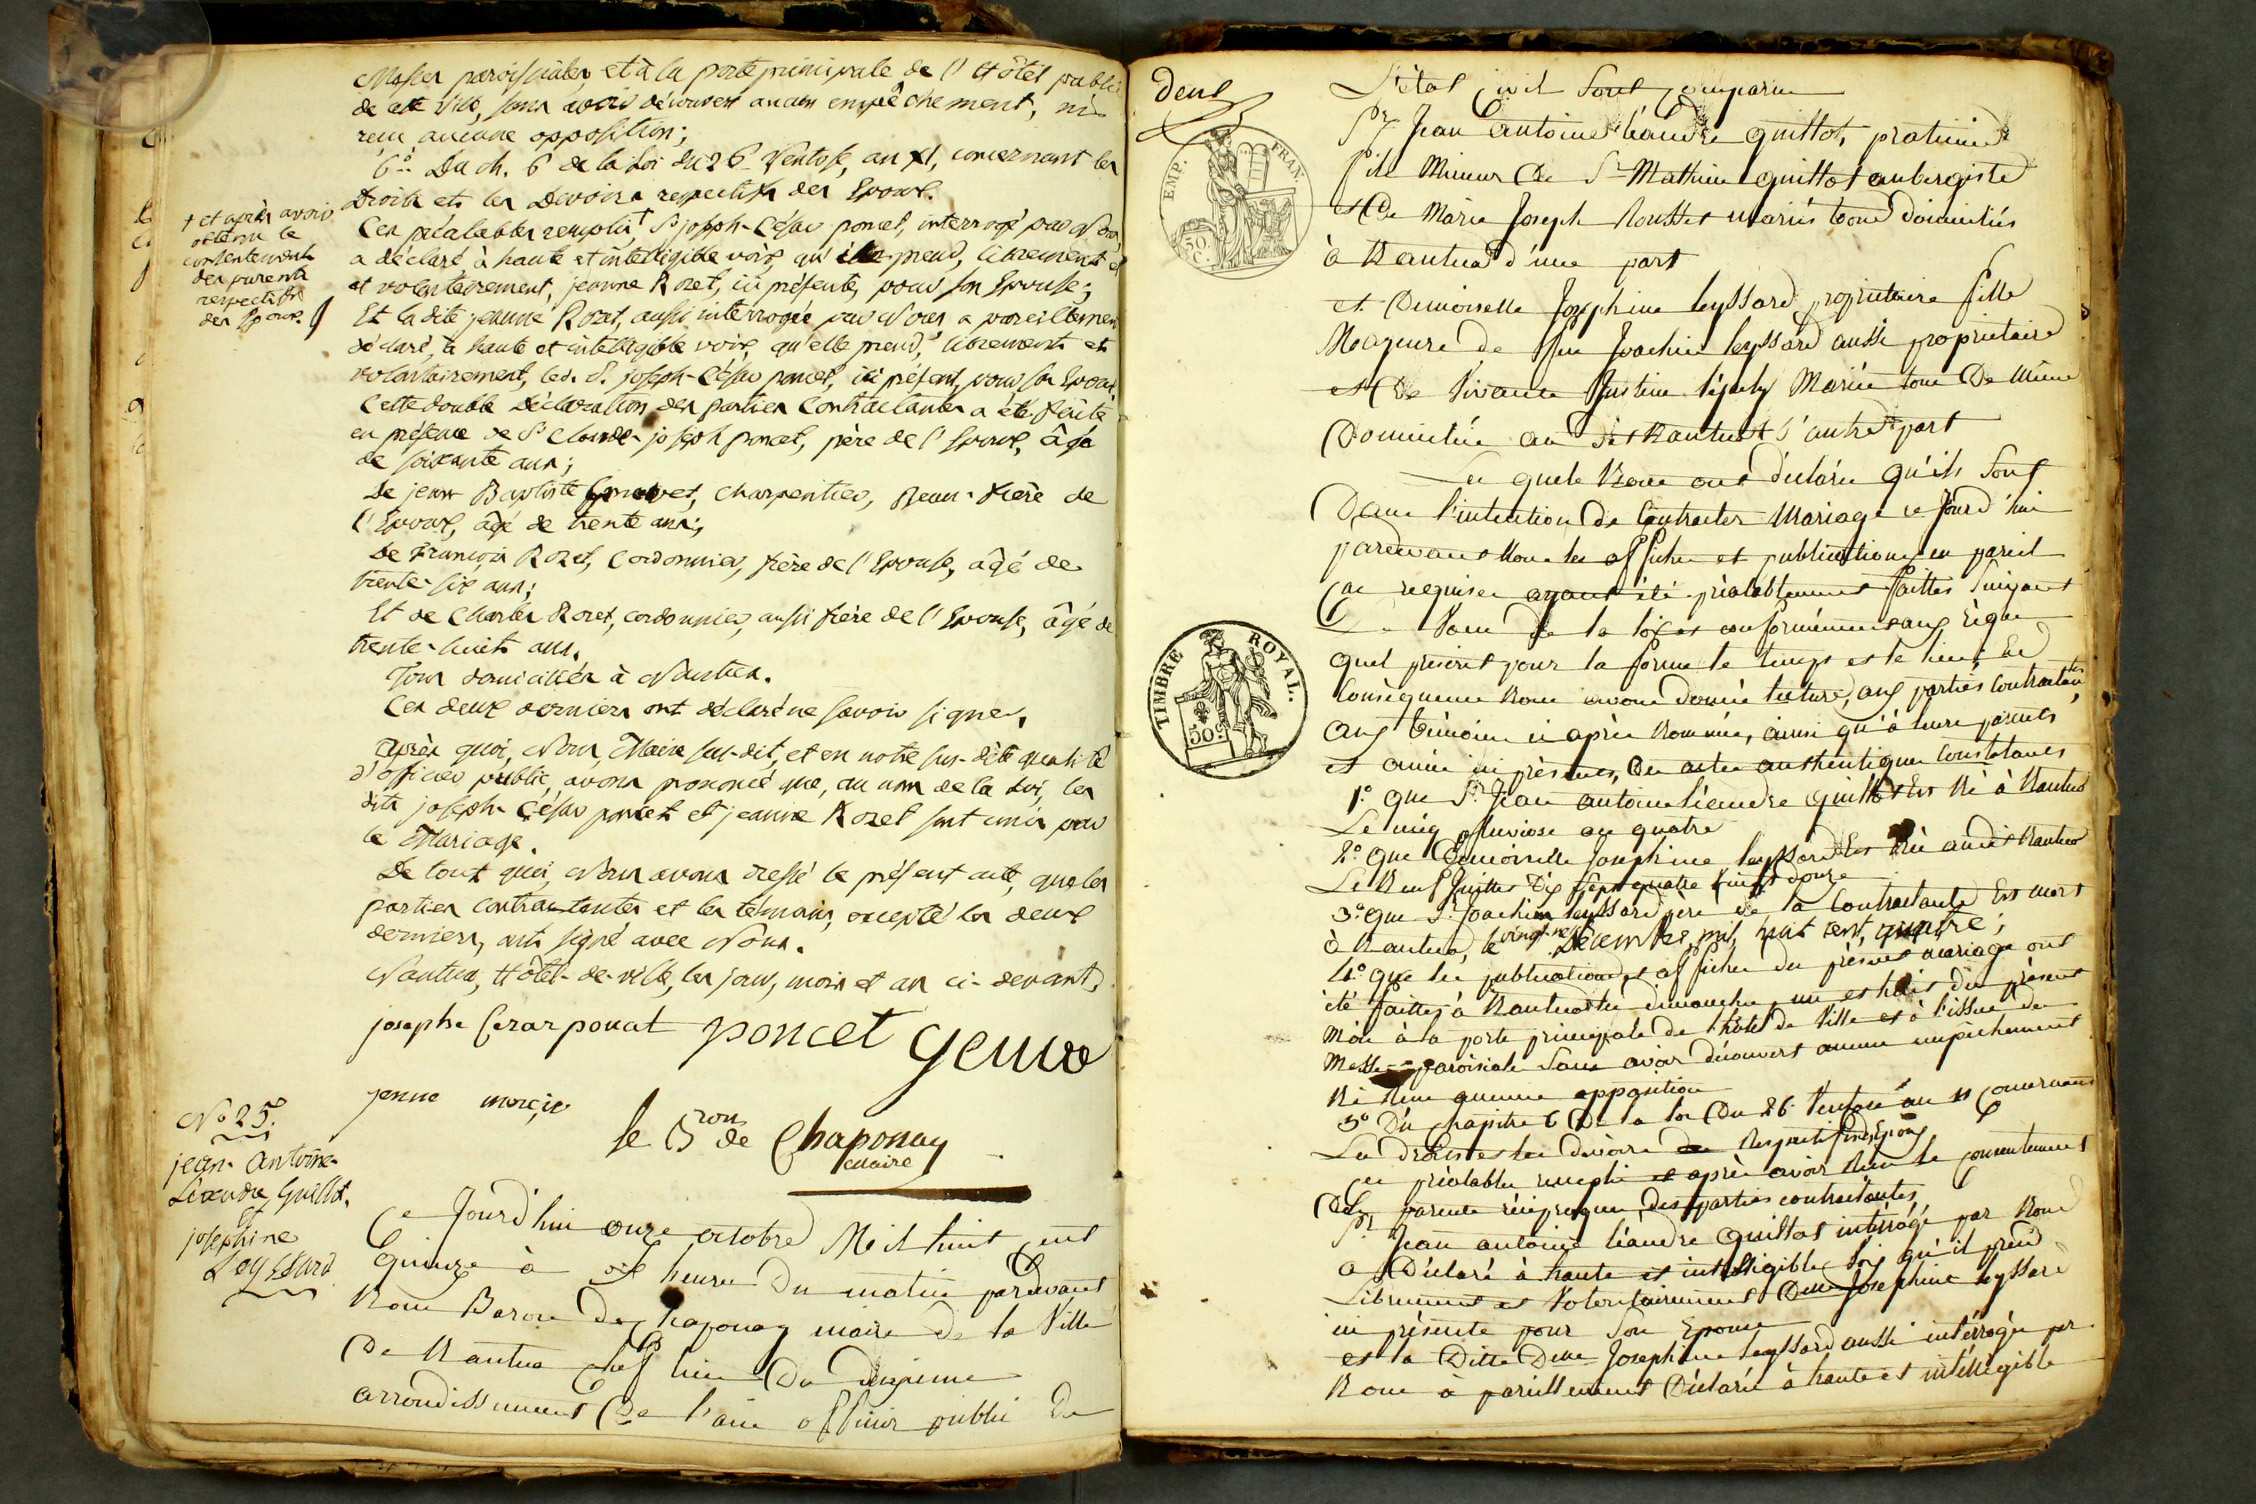 Messes paroissiales et à la porte principale de l'Hôtel public
de cette ville, sans avoir découvert aucun empêchement, ni
reçu aucune opposition;
6.° Du ch. 6 de la Loi du 26 Ventose, an XI, concernant les
Droits et les Devoirs respectifs des Epoux.
Ces préalables remplis + S. joseph-César poncet, interrogé par Nous,
a déclaré à haute et intelligible voix, qu'il prend, librement et
et volontairement, jeanne Rozet, ici présente, pour son Epouse;
Et la dite jeanne Rozet, aussi interrogée par Nous a pareillement
déclaré, à haute et intelligible voix, qu'elle prend, librement et
volontairement, led. S. joseph-César poncet, ici présent, pour son Epoux.
Cette double déclaration des parties Contractantes a été faite
en présence de S. Claude-joseph poncet, père de l'Epoux, âgé
de soixante ans;
De jean Baptiste charpentier, Beau-frère de
l'Epoux, âgé de trente ans;
De françois Rozet, Cordonnier, frère de l'Epouse, âgé de
trente-six ans;
Et de Charles Rozet, cordonnier, aussi frère de l'Epouse, âgé de
trente-huit ans.
Tous domiciliés à Nantua.
Ces deux derniers ont déclaré ne savoir signer.
Après quoi, Nous, Maire sus-dit, et en notre sus-dite qualité
d'officier public, avons prononcé que, au nom de la Loi, les
dits joseph-César poncet et jeanne Rozet sont unis par
le Mariage.
De tout quoi, Nous avons dressé le présent acte, que les
parties contractantes et les témoins, excepté les deux
derniers, ont signé avec Nous.
Nantua, Hôtel-de-ville, les jour, mois et an ci-devant.
+ et après avoir
obtenu le
consentement
des parents
respectifs
des Epoux.
josephe Cezar ponat poncet
jenne
le B.ron de Chaponay
Maire
N° 25.
jean-Antoine-
Léandre Guillot.
et
josephine
Leyssard
Ce Jourd'hui onze octobre Mil huit cent
Quinze à dix heures du matin pardevant
Nous Baron de Chaponay maire de la Ville
De Nantua chef lieu Du deuxieme
arrondissement De l'ain officier public De
Deux
EMP. FRAN.
50 C.
TIMBRE ROYAL.
50 C.
L'état Civil Sont Comparus
S.r Jean Antoine Léandre Guillot, praticien
fils Mineur De S. Mathieu Guillot aubergiste
et De Marie Joseph Rousset mariés tous Domiciliés
à Nantua d'une part
et Demoiselle Josephine Leyssard propriétaire fille
Majeure de feu Joachim Leyssard aussi propriétaire
et De Vivante Justine Mariée tous De Même
Domiciliée au dit Nantua d'autre part
Les quels Nous ont déclaré qu'ils Sont
Dans l'intention De Contracter Mariage ce Jourd'hui
pardevant Nous les affiches et publications en pareil
Cas requises ayant été préalablement faittes Suivant
Le Voeu De la loi et conformément aux règles
quel préscrit pour la forme le temps et le lieu; En
Conséquence Nous avons donné lecture, aux parties Contractantes,
aux témoins ci après Nommés, ainsi qu'à leurs parents
et amis ici présents, Des actes authentiques Constatants
1.° que S.r Jean antoine Léandre Guillot Est Né à Nantua
Le cinq pluviose an quatre
2.° que Demoiselle Josephine Leyssard Est Née audit Nantua
Le Neuf Juillet Dix Sept quatre vingt douze
3.° que S.r Joachim Leyssard père de la Contractante Est mort
à Nantua, le vingt neuf Décembre mil huit cent quatre;
4.° que les publications et affiches du présent mariage ont
été faittes à Nantua les dimanches un et huit du présent
Mois à la porte principale de l'hôtel De Ville et à l'issue des
Messes paroissiales Sans avoir découvert aucun empêchement
Ni Reçu aucune opposition
5° Du Chapitre 6 De la Loi Du 26 Ventose an 11 Concernant
Les droits et les devoirs Respectifs des Epoux
Ces préalables remplis et après avoir Reçu le Consentement
Des parents réciproques des parties contractantes,
S.r Jean antoine Léandre Guillot interrogé par Nous
a Déclaré à haute et intelligible Voix qu'il prend
Librement et Volontairement Dlle Josephine Leyssard
ici présente pour Son Epouse
et la Ditte Dlle Josephine Leyssard aussi intérrogée par
Nous à pareillement Déclarée à haute et intélligible